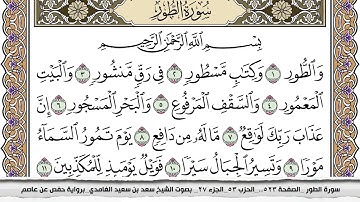 سُورَةُ الطُّورِ
بِسْمِ اللَّهِ الرَّحْمَٰنِ الرَّحِيمِ
وَالطُّورِ ١ وَكِتَابٍ مَّسْطُورٍ ٢ فِي رَقٍّ مَّنشُورٍ ٣ وَالْبَيْتِ
الْمَعْمُورِ ٤ وَالسَّقْفِ الْمَرْفُوعِ ٥ وَالْبَحْرِ الْمَسْجُورِ ٦ إِنَّ
عَذَابَ رَبِّكَ لَوَاقِعٌ ٧ مَّا لَهُ مِن دَافِعٍ ٨ يَوْمَ تَمُورُ السَّمَاءُ
مَوْرًا ٩ وَتَسِيرُ الْجِبَالُ سَيْرًا ١٠ فَوَيْلٌ يَوْمَئِذٍ لِّلْمُكَذِّبِينَ ١١
سورة الطور _ الصفحة ٥٢٣... الحزب ٥٣ .الجزء ٢٧ _ بصوت الشيخ سعد بن سعيد الغامدي .برواية حفص عن عاصم